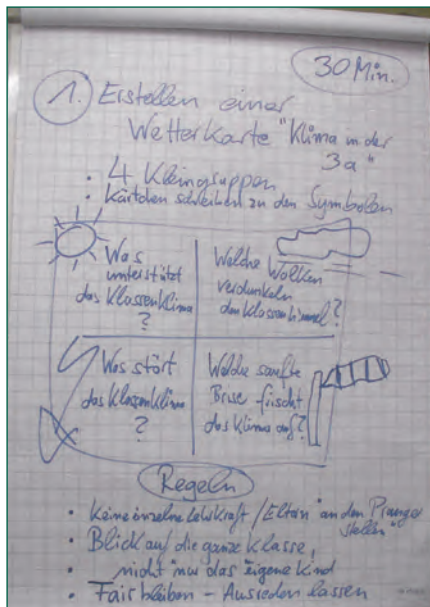 30 Min.
1. Erstellen einer
Wetterkarte "Klima in der
3a"
• 4 Kleingruppen
• Kärtchen schreiben zu den Symbolen
Was
unterstützt
das Klassenklima
?
Welche Wolken
verdunkeln
den Klassenhimmel?
Was stört
das Klassenklima
?
Welche sanfte
Brise frischt
das Klima auf?
Regeln
• Keine einzelne Lehrkraft / Eltern "an den Pranger
stellen"
• Blick auf die ganze Klasse,
nicht nur das eigene Kind
• Fair bleiben – Ausreden lassen